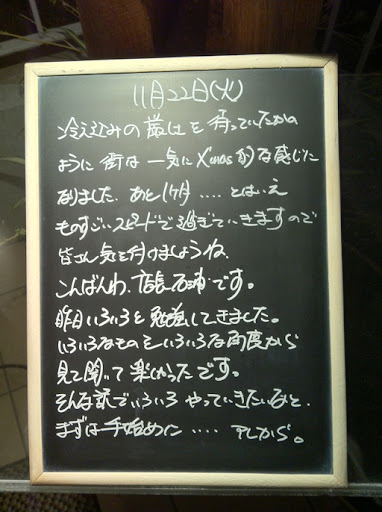 11月22日(火)
冷え込みの厳しさを待っていたかの
ように街は一気にX'mas的な感じに
なりました。あと1ヶ月‥‥とはいえ
ものすごいスピードで過ぎていきますので
皆さん気を付けましょうね。
こんばんわ、店長石浦です。
昨日いろいろと勉強してきました。
いろいろなものをいろいろな角度から
見て聞いて楽しかったです。
そんな訳でいろいろやっていきたいなと、
まずは手始めに‥‥アレから。